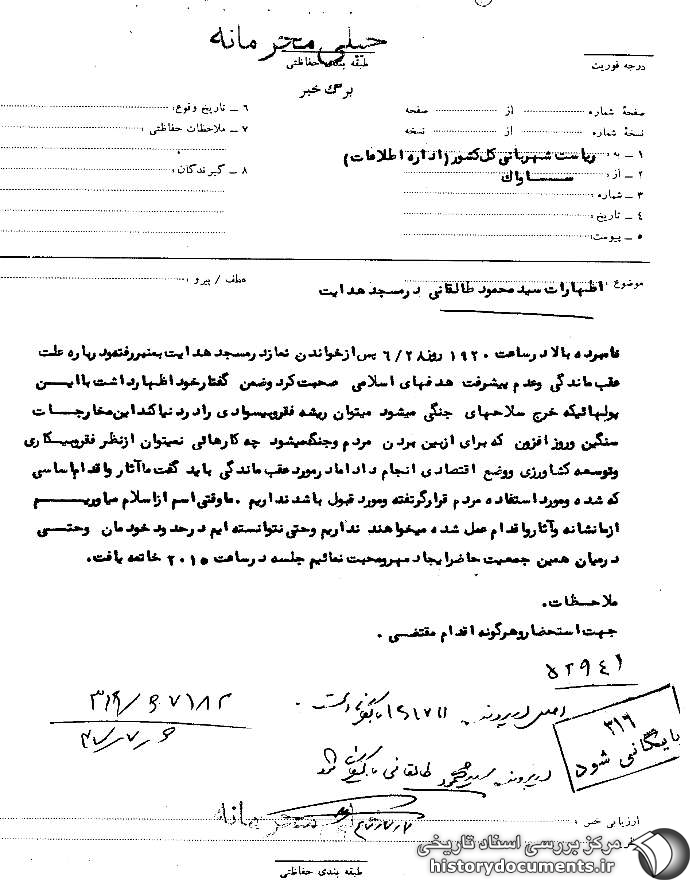 خیلی محرمانه
طبقه بندی حفاظتی
درجه فوریت
برگ خبر
صفحهٔ شماره از صفحه
نسخهٔ شماره از نسخه
۱ ـ به: ریاست شهربانی کل کشور (اداره اطلاعات)
۲ ـ از: ســـاواک
۳ ـ شماره:
۴ ـ تاریخ:
۵ ـ پیوست:
۶ ـ تاریخ وقوع:
۷ ـ ملاحظات حفاظتی:
۸ ـ گیرندگان:
موضوع: اظهارات سید محمود طالقانی در مسجد هدایت
عطف / پیرو:
نامبرده بالا در ساعت ۱۹۲۰ روز ۶/۲۸ پس از خواندن نماز در مسجد هدایت بمنبر رفته و درباره علت
عقب ماندگی و عدم پیشرفت هدفهای اسلامی صحبت کرد و ضمن گفتار خود اظهار داشت با این
پولهائیکه خرج سلاحهای جنگی میشود میتوان ریشه فقر و بیسوادی را در دنیا کند این مخارجات
سنگین و روز افزون که برای از بین بردن مردم و جنگ میشود چه کارهائی نمیتوان از نظر فقر و بیکاری
و توسعه کشاورزی و وضع اقتصادی انجام داد اما در مورد عقب ماندگی باید گفت ما آثار و اقدام اساسی
که شده و مورد استفاده مردم قرار گرتفته و مورد قبول باشد نداریم . ما وقتی اسم از اسلام میاوریـــم
از ما نشانه و آثار و اقدام عمل شده میخواهند نداریم و حتی نتوانسته ایم در حدود خودمان و حتـــی
در میان همین جمعیت حاضر ایجاد مهر و محبت نمائیم جلسه در ساعت ۲۰۱۵ خاتمه یافت.
ملاحظات.
جهت استحضار و هرگونه اقدام مقتضی .
۵۲۹۴۱
۳۱۶
بایگانی شود
سید محمود طالقانی
ارزیابی خبر:
محرمانه
طبقه بندی حفاظتی
مرکز بررسی اسناد تاریخی
historydocuments.ir